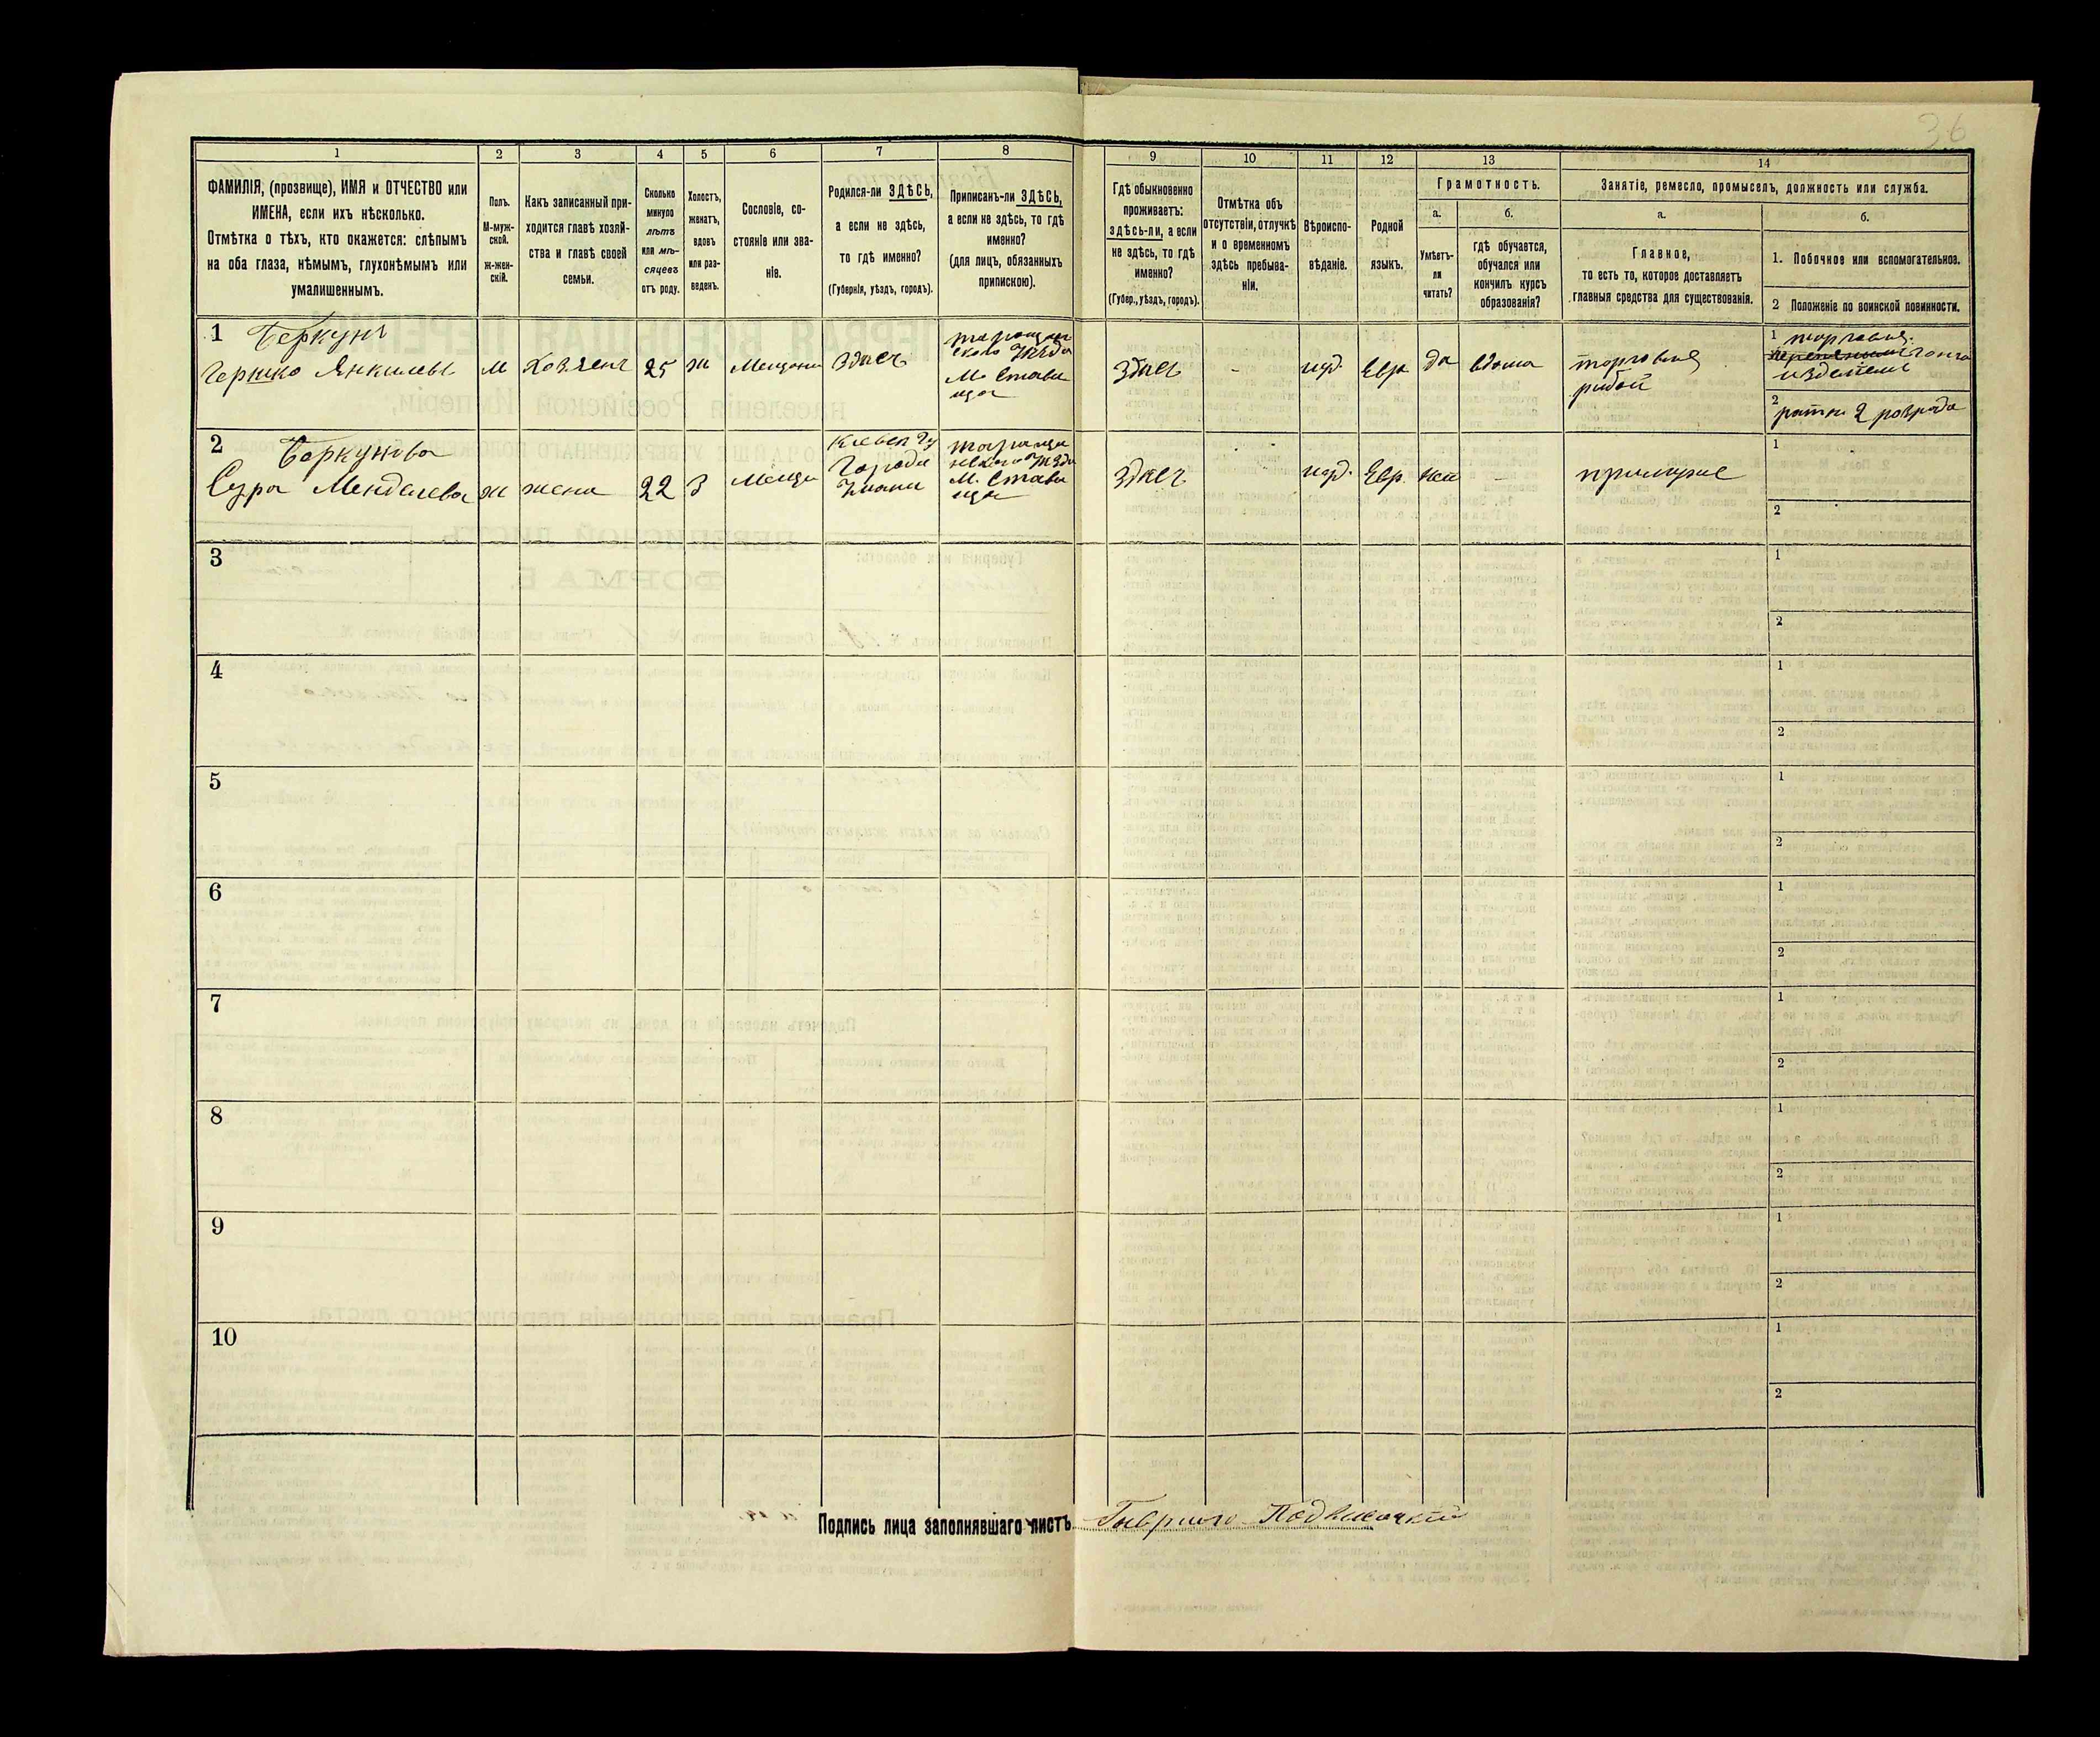 36
1
2
3
4
5
6
7
8
9
10
11
12
13
14
ФАМИЛІЯ, (прозвище), ИМЯ и ОТЧЕСТВО или
ИМЕНА, если ихъ нѣсколько.
Отмѣтка о тѣхъ, кто окажется: слѣпымъ
на оба глаза, нѣмымъ, глухонѣмымъ или
умалишеннымъ.
Полъ.
М-муж-
ской.
ж-жен-
скій.
Какъ записанный при-
ходится главѣ хозяй-
ства и главѣ своей
семьи.
Сколько
минуло
лѣтъ
или мѣ-
сяцевъ
отъ роду.
Холостъ,
женатъ,
вдовъ
или раз-
веденъ.
Сословіе, со-
стояніе или зва-
ніе.
Родился-ли ЗДѢСЬ,
а если не здѣсь,
то гдѣ именно?
(Губернія, уѣздъ, городъ).
Приписанъ-ли ЗДѢСЬ,
а если не здѣсь, то гдѣ
именно?
(для лицъ, обязанныхъ
припискою).
Гдѣ обыкновенно
проживаетъ:
здѣсь-ли, а если
не здѣсь, то гдѣ
именно?
(Губер., уѣздъ, городъ).
Отмѣтка объ
отсутствіи, отлучкѣ
и о временномъ
здѣсь пребыва-
ніи.
Вѣроиспо-
вѣданіе.
Родной
языкъ.
Грамотность.
а.
б.
Умѣетъ-
ли
читать?
гдѣ обучается,
обучался или
кончилъ курсъ
образованія?
Занятіе, ремесло, промыселъ, должность или служба.
а.
б.
Главное,
то есть то, которое доставляетъ
главныя средства для существованія.
1. Побочное или вспомогательное.
2 Положеніе по воинской повинности.
1 Беркунъ
Гершко Янкилевъ
М
Хозяенъ
25
ж
Мещани
Здѣсь
таращан
ского уѣзда
М. Стави
ща
Здѣсь
-
иуд.
Евр
да
вдома
торговля
рибой
1 торговля
изделіеме
2 ратн 2 розряда
2 Беркунова
Сура Менделева
ж
жена
22
З
Меща
Киевск гу
Города
Умани
Тараща
нского уѣзда
М. Стави
ща
Здѣсь
иуд.
Евр.
нет
-
примуже
1
2
3
1
2
4
1
2
5
1
2
6
1
2
7
1
2
8
1
2
9
1
2
10
1
2
Подпись лица заполнявшаго листъ Гаврило